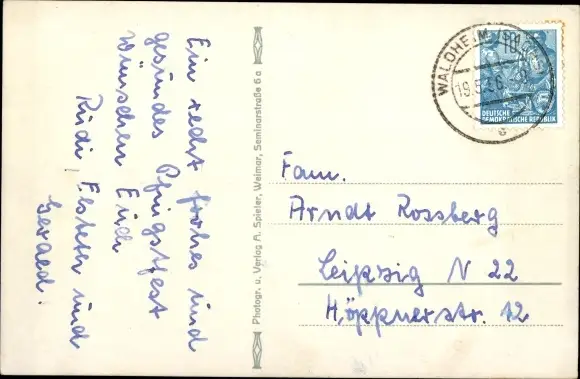 Ein recht frohes und
gesundes Pfingstfest
wünschen Euch
Rudi, Elsteter und
Gerald.
Photogr. u. Verlag A. Spieler, Weimar, Seminarstraße 6a
WALDHEIM
10
DEUTSCHE
DEMOKRATISCHE REPUBLIK
Fam.
Arndt Rossberg
Leipzig N 22
Höppnerstr. 12